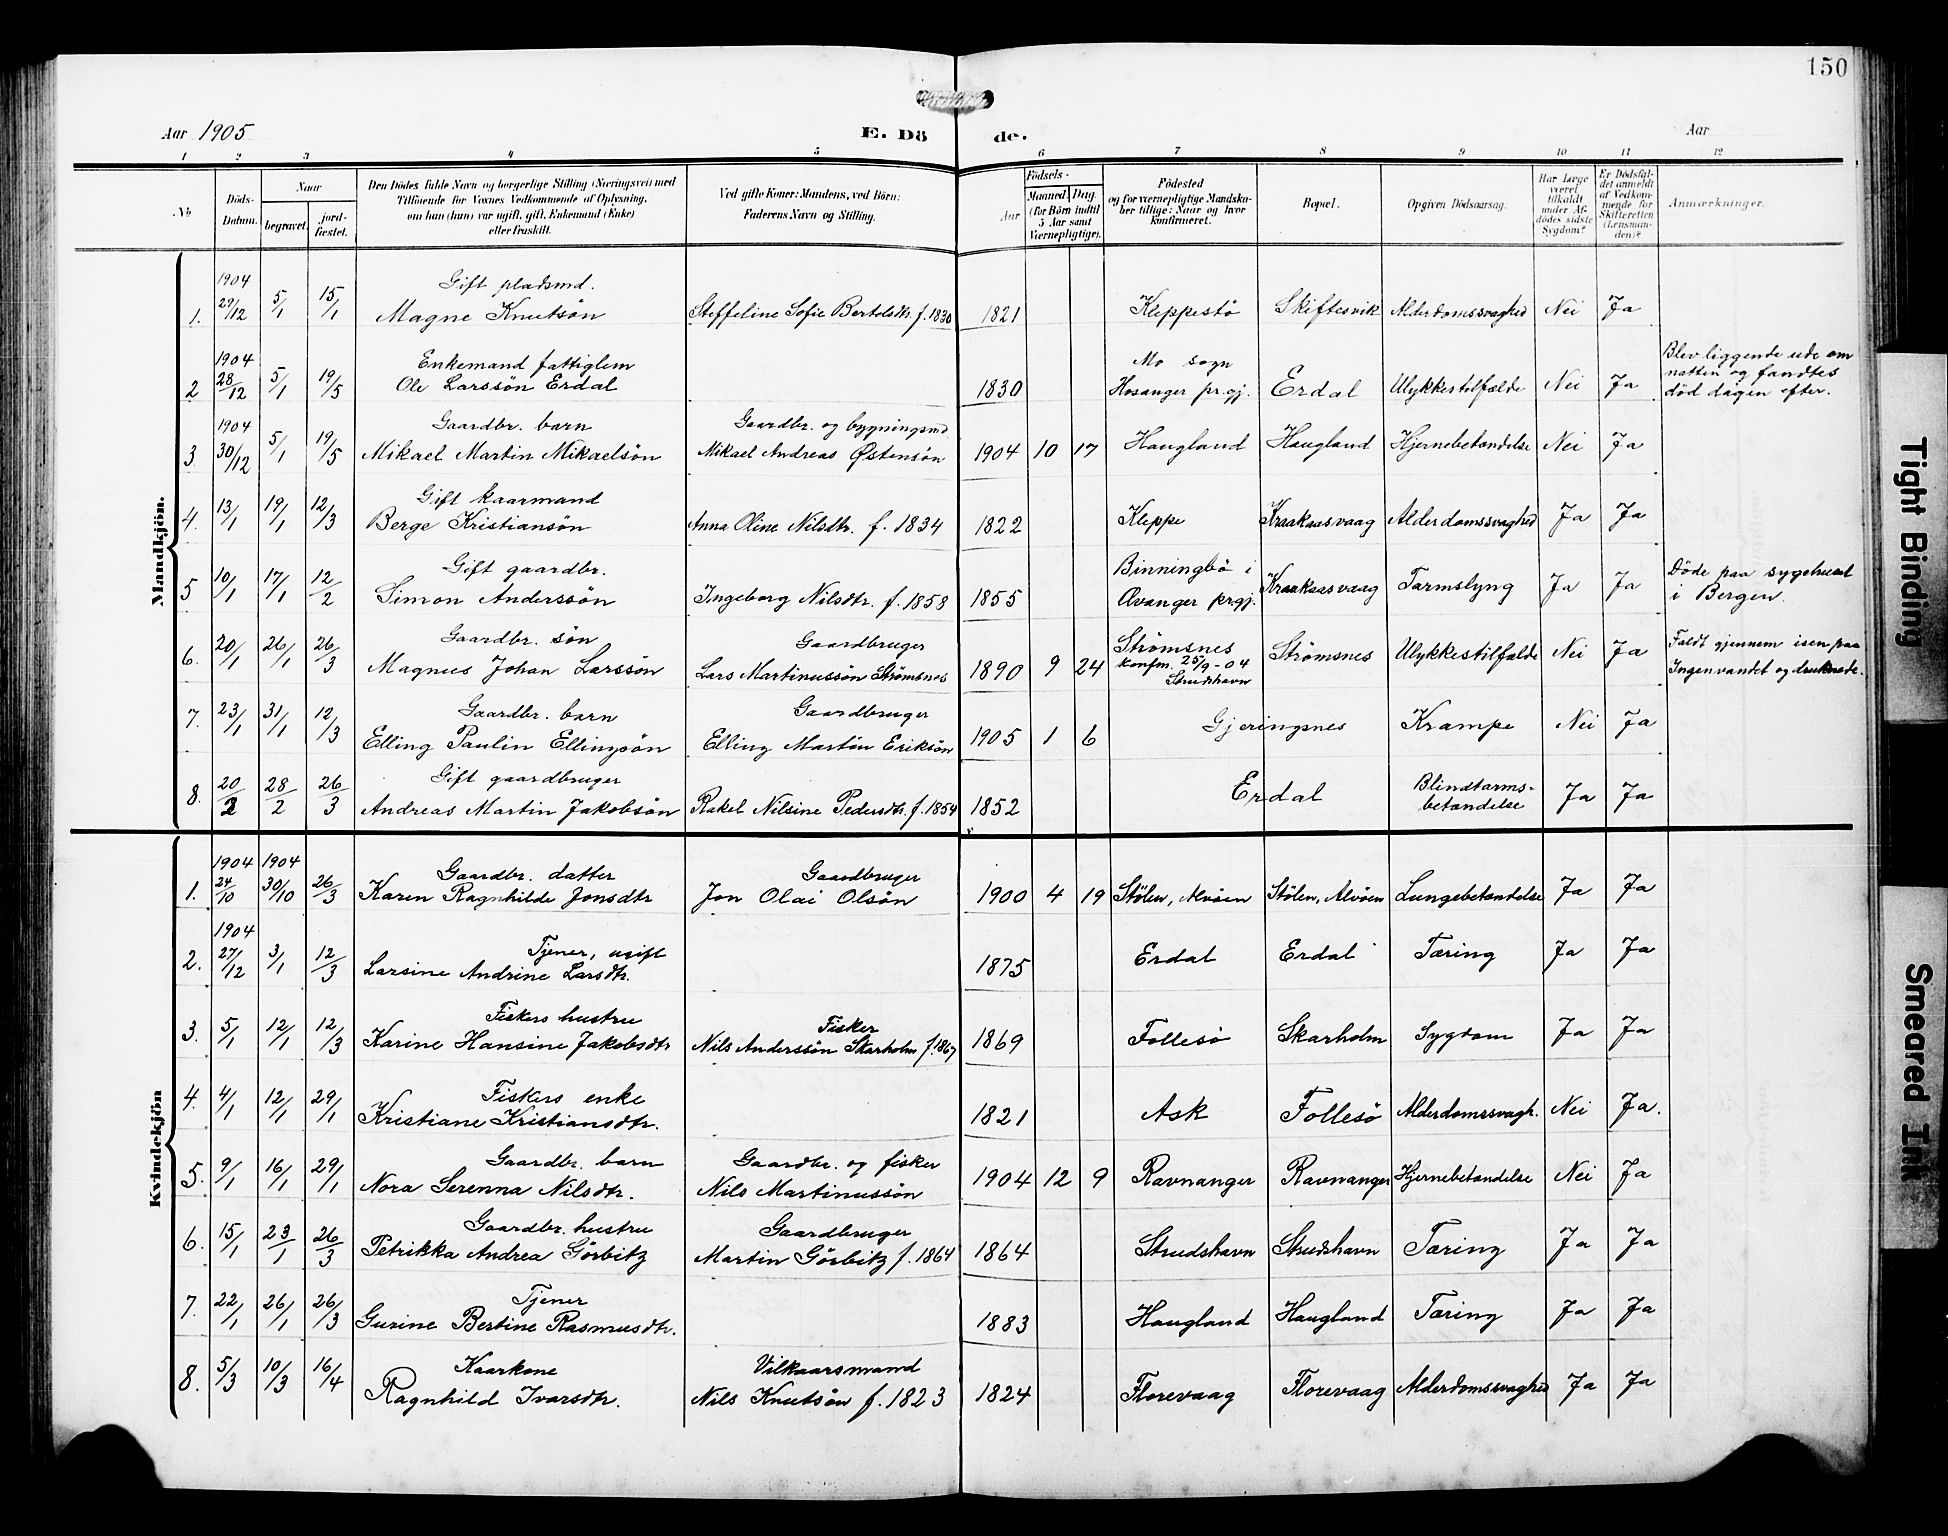 150
Aar 1905
E. Dö de.
Aar
1 2 3 4 5 6 7 8 9 10 11 12
No
Döds-Datum.
Naar
begravet.
jord-fæstet.
Den Dödes fulde Navn og borgerlige Stilling (Næringsvei) med
Tilföiende for Voxnes Vedkommende af Oplysning,
om han (hun) var ugift, gift, Enkemand (Enke)
eller fraskilt.
Ved gifte Koner: Mandens, ved Börn:
Faderens Navn og Stilling.
Födsels-
Aar
Maaned. Dag.
(for Börn indtil
5 Aar samt
Værnepligtige).
Födested
og for værnepligtige Mandska-
ber tillige: Naar og hvor
konfirmeret.
Bopæl.
Opgiven Dödsaarsag.
Har Læge
været
tilkaldt
under Af-
dödes sidste
Sygdom?
Er Dödsfal-
det anmeldt
af Vedkom-
mende for
Skifteretten
(Lensman-
den)?
Anmærkninger.
Mandkjön.
1. 1904 29/12 5/1 15/1 Gift pladsmd. Magne Knutsøn Steffeline Sofie Bertolsdtr. f. 1830 1821 Kleppestø Skiftesvik Alderdomssvaghed Nei Ja
2 1904 28/12 5/1 19/5 Enkemand fattiglem Ole Larssøn Erdal 1830 Mo sogn Hosanger pr.gj. Erdal Ulykkestilfælde Nei Ja Blev liggende ude om natten og fandtes død dagen efter.
3. 1904 30/12 5/1 19/5 Gaardbr. barn Mikael Martin Mikaelsøn Gaardbr. og bygningsmd Mikael Andreas Østensøn 1904 10 17 Haugland Haugland Hjernebetændelse Nei Ja
4. 13/1 19/1 12/3 Gift kaarmand Berge Kristiansøn Anna Oline Nilsdtr. f. 1834 1822 Kleppe Kraakaasvaag Alderdomssvaghed Ja Ja
5 10/1 17/1 12/2 Gift gaardbr. Simon Anderssøn Ingeborg Nilsdtr. f. 1858 1855 Binningbø i Avanger prgj. Kraakaasvaag Tarmslyng Ja Ja Døde paa sygehuset i Bergen.
6. 20/1 26/1 26/3 Gaardbr. søn Magnus Johan Larssøn Gaardbruger Lars Martinussøn Strømsnes 1890 9 24 Strømsnes konfm. 25/9-04 Strudshavn Strømsnes Ulykkestilfælde Nei Ja Faldt gjennem isen paa Ingenvandet og druknede.
7. 23/1 31/1 12/3 Gaardbr. barn Elling Paulin Ellingsøn Gaardbruger Elling Martin Eriksøn 1905 1 6 Gjeringsnes Krampe Nei Ja
8. 20/2 28/2 26/3 Gift gaardbruger Andreas Martin Jakobsøn Rakel Nilsine Pedersdtr. f. 1854 1852 Erdal Blindtarms-betændelse Ja Ja
Kvindekjön
1. 1904 24/10 1904 30/10 26/3 Gaardbr. datter Karen Ragnhilde Jonsdtr Gaardbruger Jon Olai Olsøn 1900 4 19 Stølen, Alvøen Stølen, Alvøen Lungebetændelse Ja Ja
2. 1904 27/12 3/1 12/3 Tjener, ugift Larsine Andrine Larsdtr. 1875 Erdal Erdal Tæring Ja Ja
3. 5/1 12/1 12/3 Fiskers hustru Karine Hansine Jakobsdtr Fisker Nils Anderssøn Skarholm f. 1867 1869 Follesø Skarholm Sygdom Ja Ja
4. 4/1 12/1 29/1 Fiskers enke Kristiane Kristiansdtr. 1821 Ask Follesø Alderdomssvagh. Nei Ja.
5. 9/1 16/1 29/1 Gaardbr. barn Nora Serenna Nilsdtr. Gaardbr. og fisker Nils Martinussøn 1904 12 9 Ravnanger Ravnanger Hjernebetændelse Nei Ja
6. 15/1 23/1 26/3 Gaardbr. hustru Petrikka Andrea Görbitz Gaardbruger Martin Görbitz f. 1864 1864 Strudshavn Strudshavn Tæring Ja Ja
7. 22/1 26/1 26/3 Tjener Gurine Bertine Rasmusdtr. 1883 Haugland Haugland Tæring Ja Ja
8. 5/3 10/3 16/4 Kaarkone Ragnhild Ivarsdtr. Vilkaarsmand Nils Knutsøn f. 1823 1824 Florevaag Florevaag Alderdomssvaghed Ja Ja
Tight Binding
Smeared Ink